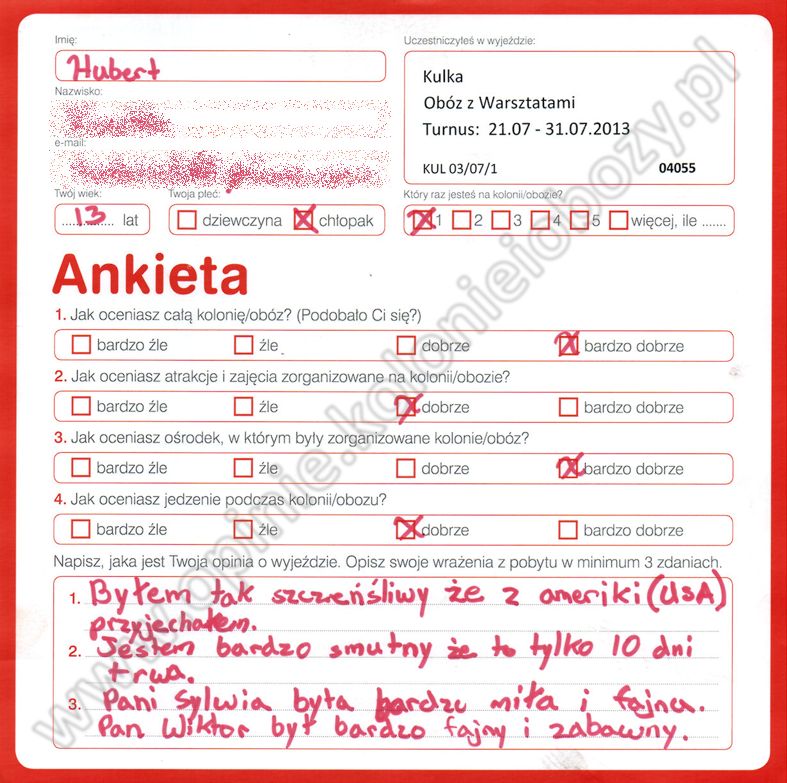 Imię:
Hubert
Uczestniczyłeś w wyjeździe:
Kulka
Obóz z Warsztatami
Turnus: 21.07 - 31.07.2013
KUL 03/07/1 04055
Nazwisko:
e-mail:
Twój wiek:
13 lat
Twoja płeć:
dziewczyna chłopak
Który raz jesteś na kolonii/obozie?
1 2 3 4 5 więcej, ile .......
Ankieta
1. Jak oceniasz całą kolonię/obóz? (Podobało Ci się?)
bardzo źle źle dobrze bardzo dobrze
2. Jak oceniasz atrakcje i zajęcia zorganizowane na kolonii/obozie?
bardzo źle źle dobrze bardzo dobrze
3. Jak oceniasz ośrodek, w którym były zorganizowane kolonie/obóz?
bardzo źle źle dobrze bardzo dobrze
4. Jak oceniasz jedzenie podczas kolonii/obozu?
bardzo źle źle dobrze bardzo dobrze
Napisz, jaka jest Twoja opinia o wyjeździe. Opisz swoje wrażenia z pobytu w minimum 3 zdaniach.
1. Byłem tak szczenśliwy że z ameriki (USA)
przyjechałem.
2. Jestem bardzo smutny że to tylko 10 dni
trwa.
3. Pani Sylwia była bardzo miła i fajna.
Pan Wiktor był bardzo fajny i zabawny.
www.opinie.kolonieiobozy.pl